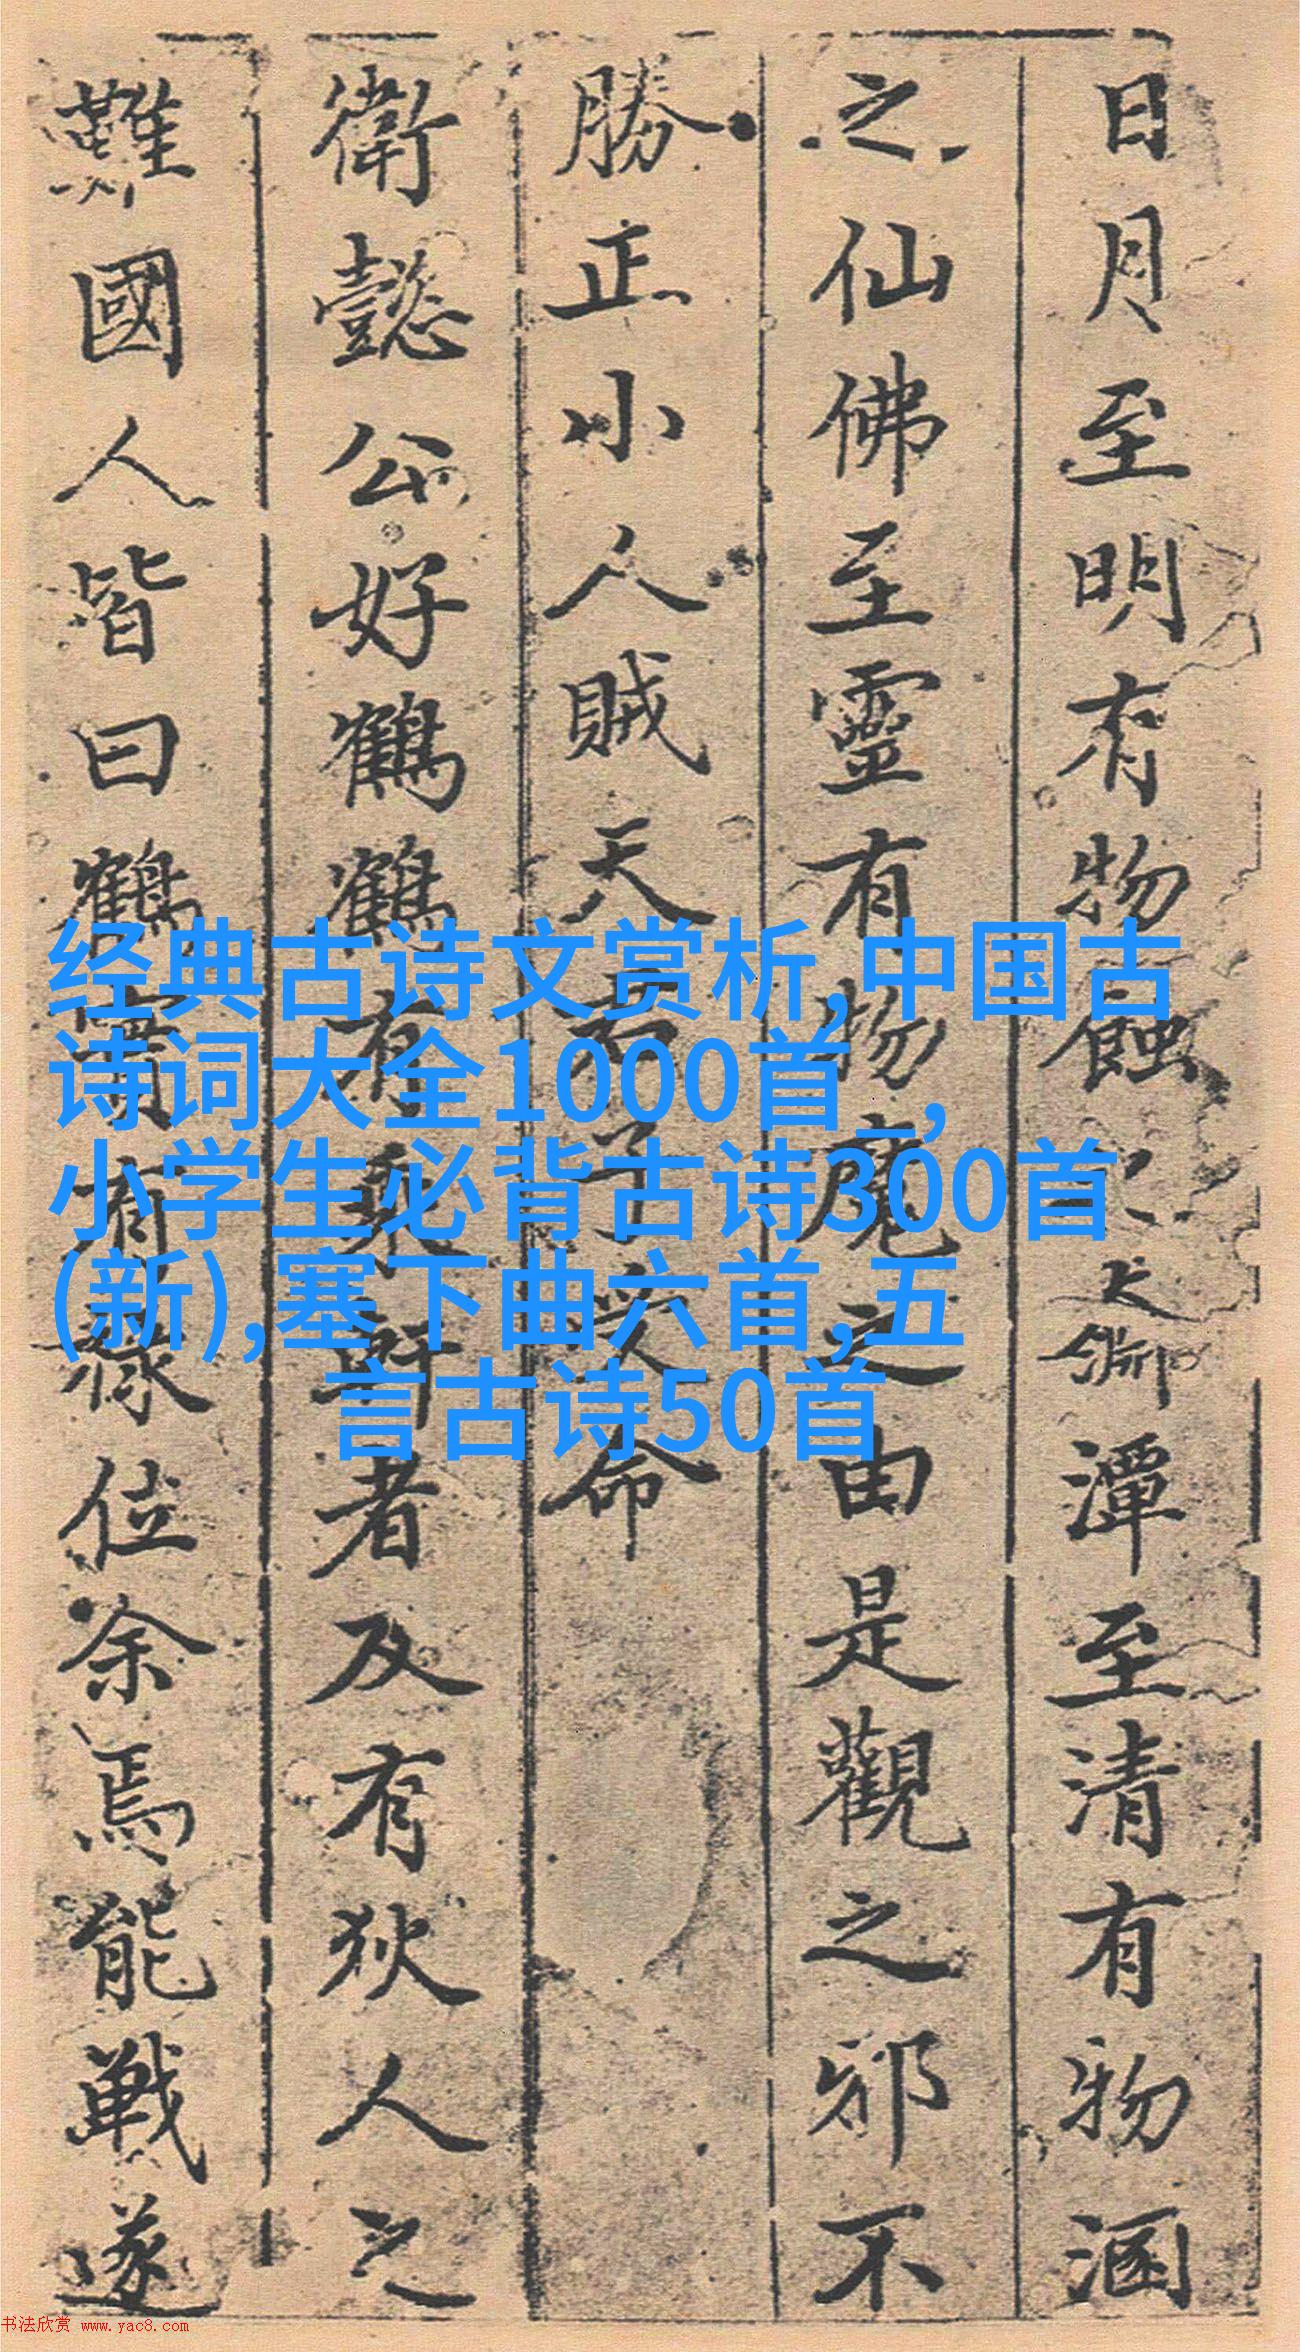 日月至明有物蝕之大淵潭至清有物涵
之仙佛至靈有物魔之由是觀之邪不
勝正小人賊天君子受命
衛懿公好鶴鶴有乘軒者及有狄人之
難國人皆曰鶴實有祿位余焉能戰遂
经典古诗文赏析,中国古
诗词大全1000首_,
小学生必背古诗300首
(新),塞下曲六首,五
言古诗50首
书法欣赏 www.yac8.com